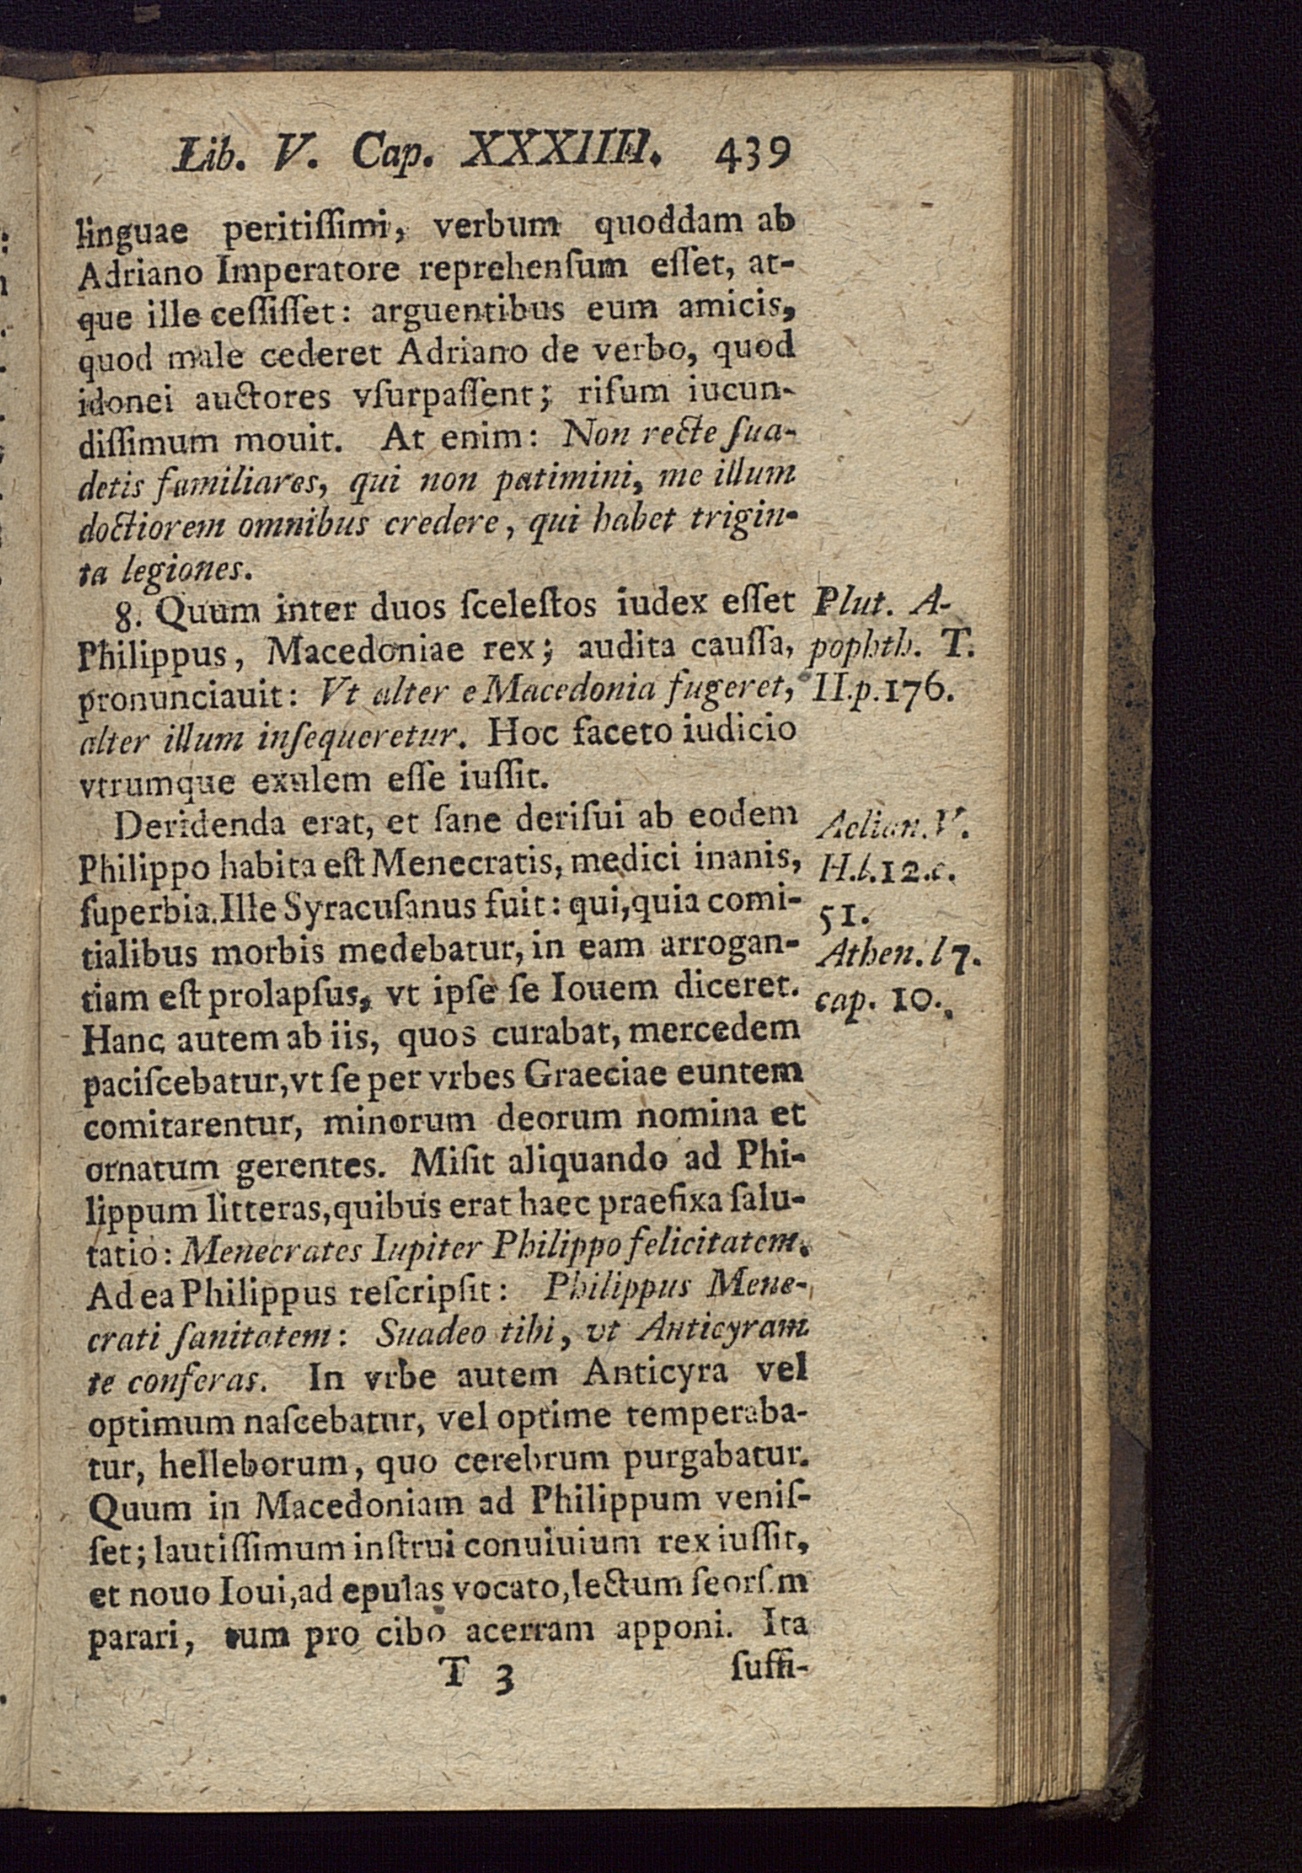 Lib. V. Cap. XXXIIII. 439
linguae peritiſſimi, verbum quoddam ab
Adriano Imperatore reprehenſum eſſet, at-
que ille ceſſiſſet: arguentibus eum amicis,
quod male cederet Adriano de verbo, quod
idonei auctores vſurpaſſent; riſum iucun-
diſſimum mouit. At enim: Non recte ſua-
detis familiares, qui non patimini, me illum
doctiorem omnibus credere, qui habet trigin-
ta legiones.
8. Quum inter duos ſceleſtos iudex eſſet
Philippus, Macedoniae rex; audita cauſſa,
pronunciauit: Vt alter e Macedonia fugeret,
alter illum inſequeretur. Hoc faceto iudicio
vtrumque exulem eſſe iuſſit.
Plut. A-
pophth. T.
II.p.176.
Deridenda erat, et ſane deriſui ab eodem
Philippo habita eſt Menecratis, medici inanis,
ſuperbia. Ille Syracuſanus fuit: qui, quia comi-
tialibus morbis medebatur, in eam arrogan-
tiam eſt prolapſus, vt ipſe ſe Iouem diceret.
Hanc autem ab iis, quos curabat, mercedem
paciſcebatur, vt ſe per vrbes Graeciae euntem
comitarentur, minorum deorum nomina et
ornatum gerentes. Miſit aliquando ad Phi-
lippum litteras, quibus erat haec praefixa ſalu-
tatio: Menecrates Iupiter Philippo felicitatem.
Ad ea Philippus reſcripſit: Philippus Mene-
crati ſanitatem: Suadeo tibi, vt Anticyram
te conferas. In vrbe autem Anticyra vel
optimum naſcebatur, vel optime temperaba-
tur, helleborum, quo cerebrum purgabatur.
Quum in Macedoniam ad Philippum veniſ-
ſet; lautiſſimum inſtrui conuiuium rex iuſſit,
et nouo Ioui, ad epulas vocato, lectum ſeorſum
parari, tum pro cibo acerram apponi. Ita
Aelian. V.
H.l.12.c.
51.
Athen. l 7.
cap. 10.
T 3
ſuffi-